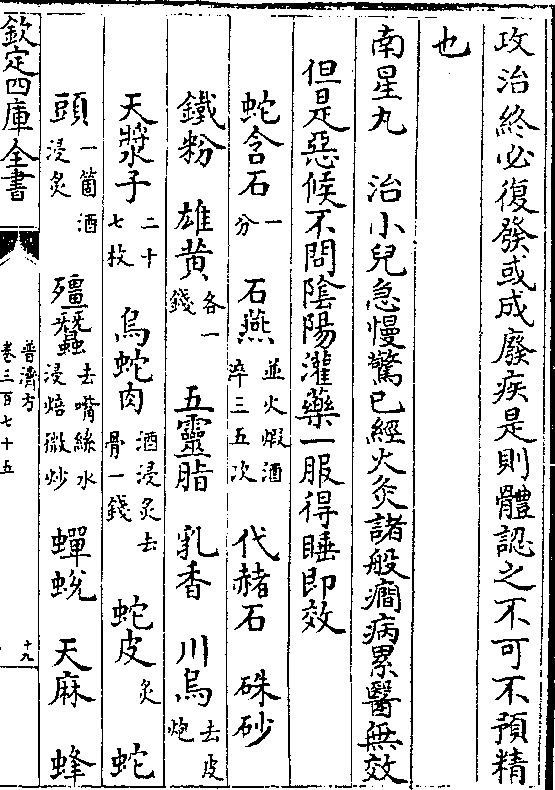 攻治終必復發或成廢疾是則體認之不可不預精
也
南星丸　治小兒急慢驚已經火灸諸般癎病累醫無效
但是惡候不問陰陽灌藥一服得睡即效
蛇含石一分　石燕並火煆酒淬三五次　代赭石　硃砂
鐵粉　雄黄各一錢　五靈脂　乳香　川烏去皮炮
天漿子二十七枚　烏蛇肉酒浸炙去骨一錢　蛇皮炙　蛇
頭一箇酒浸炙　殭蠶去嘴絲水浸焙微炒　蟬蛻　天麻　蜂
欽定四庫全書
普濟方
卷三百七十五
十九